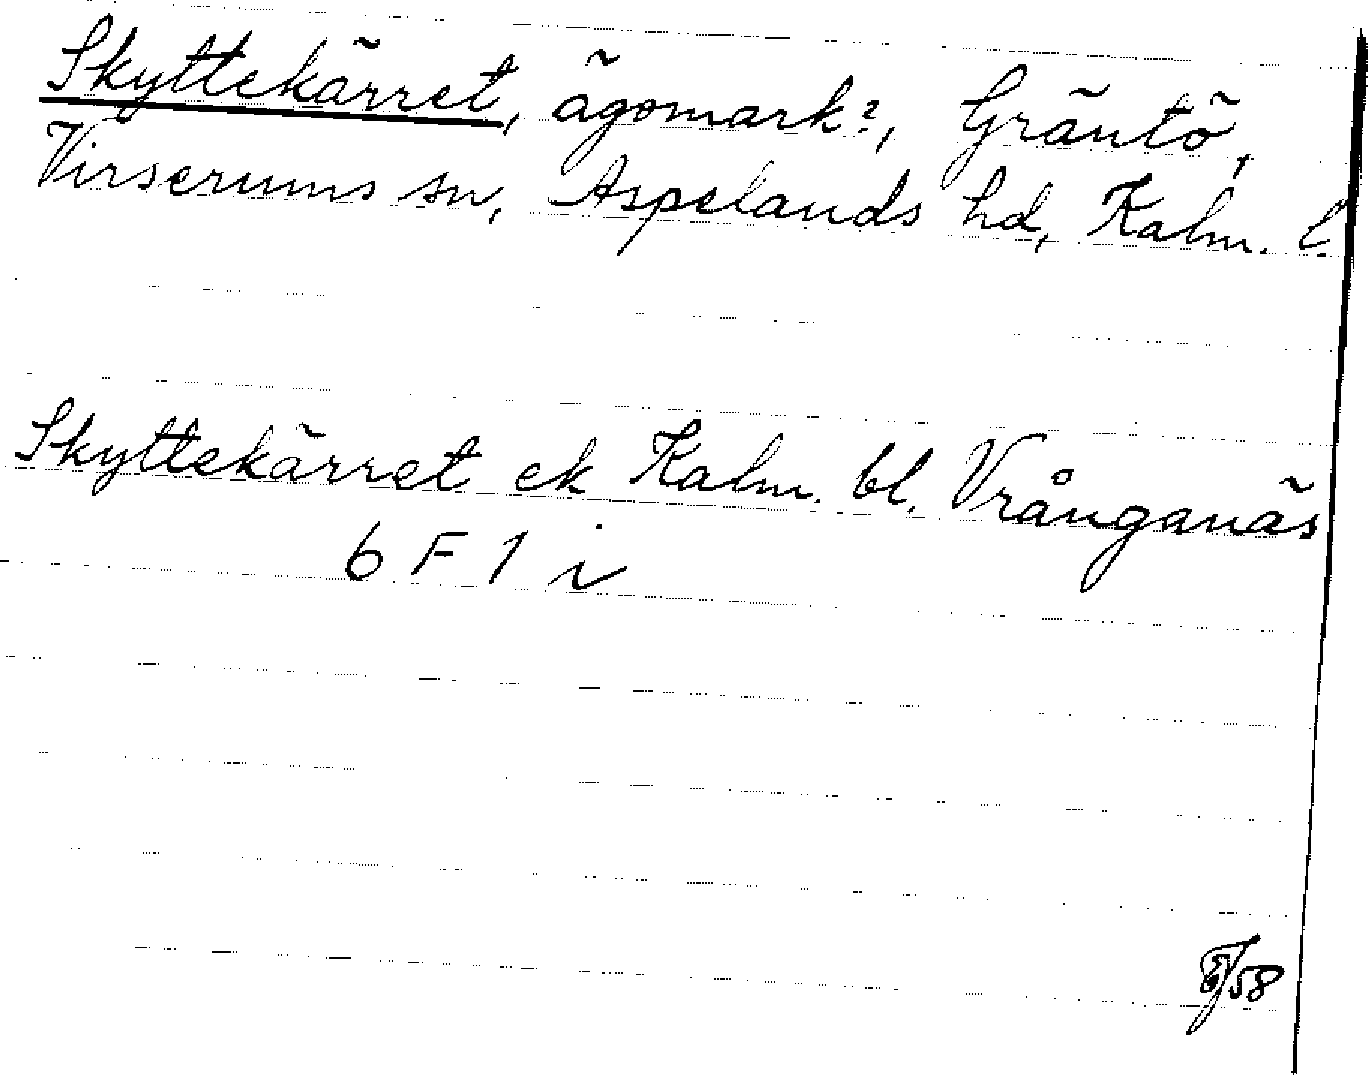 Skyttekärret, ägomark?, Gräntö,
Virserums sn, Aspelands hd, Kalm. l.
Skyttekärret ek Kalm. bl. Vrånganäs
6 F 1 i
/58